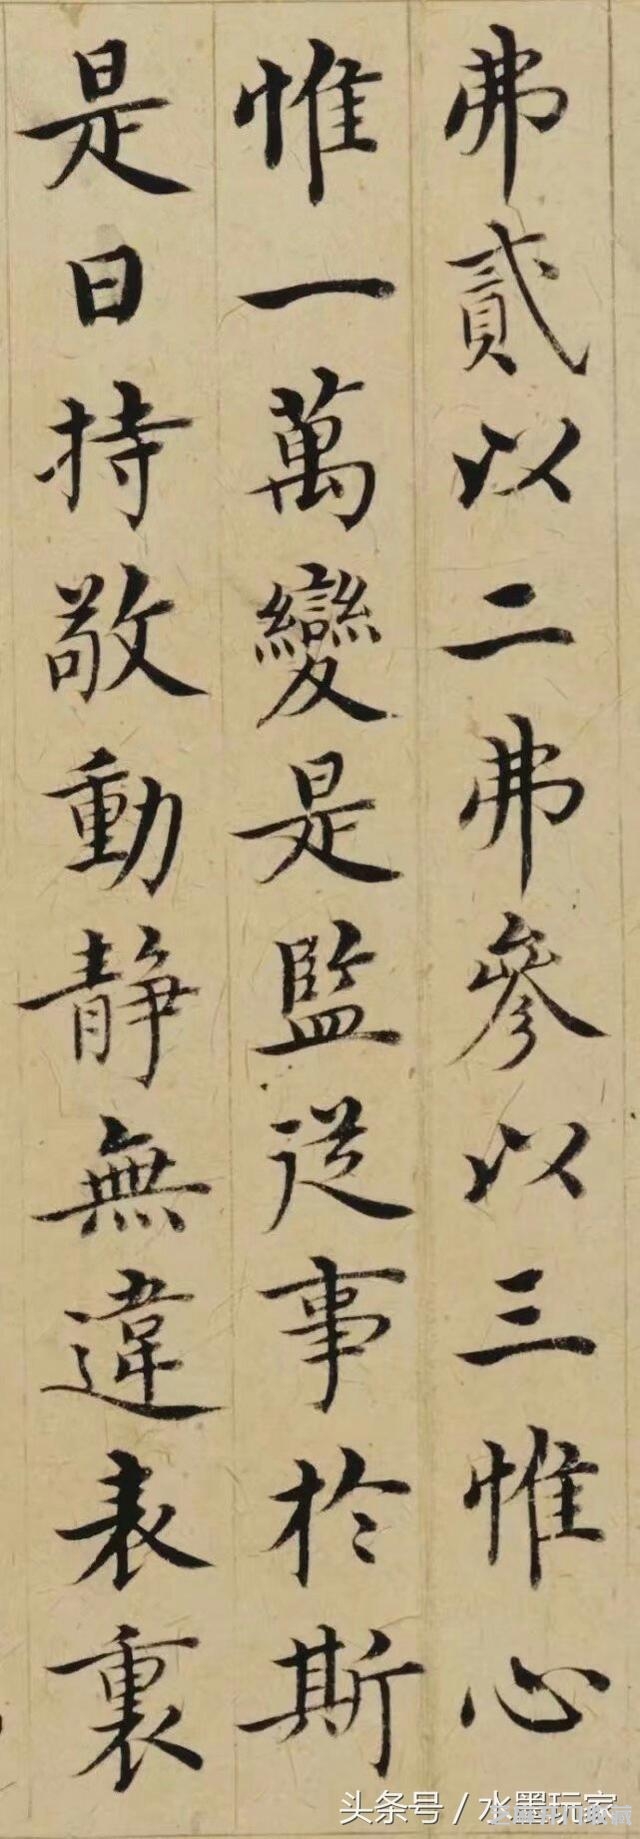 弗貳以二弗參以三惟心
惟一萬變是監從事於斯
是曰持敬動静無違表裏
头条号／水墨玩家